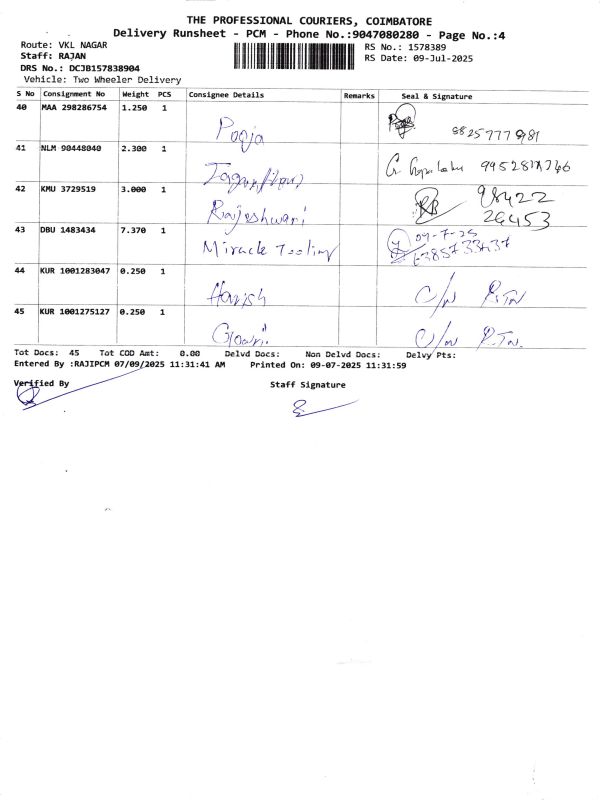 THE PROFESSIONAL COURIERS, COIMBATORE
Delivery Runsheet - PCM - Phone No.:9047080280 - Page No.:4
Route: VKL NAGAR
RS No.: 1578389
Staff: RAJAN
RS Date: 09-Jul-2025
DRS No.: DCJB157838904
Vehicle: Two Wheeler Delivery
S No Consignment No Weight PCS Consignee Details Remarks Seal & Signature
40 MAA 298286754 1.250 1
Pooja
41 NLM 90448040 2.300 1
42 KMU 3729519 3.000 1
Rajeshwari
98422
26453
43 DBU 1483434 7.370 1
Miracle Tooling
09-7-25
44 KUR 1001283047 0.250 1
Harish C/N R.TN
45 KUR 1001275127 0.250 1
Gowri C/N R.TN.
Tot Docs: 45 Tot COD Amt: 0.00 Delvd Docs: Non Delvd Docs: Delvy Pts:
Entered By :RAJIPCM 07/09/2025 11:31:41 AM Printed On: 09-07-2025 11:31:59
Verified By Staff Signature